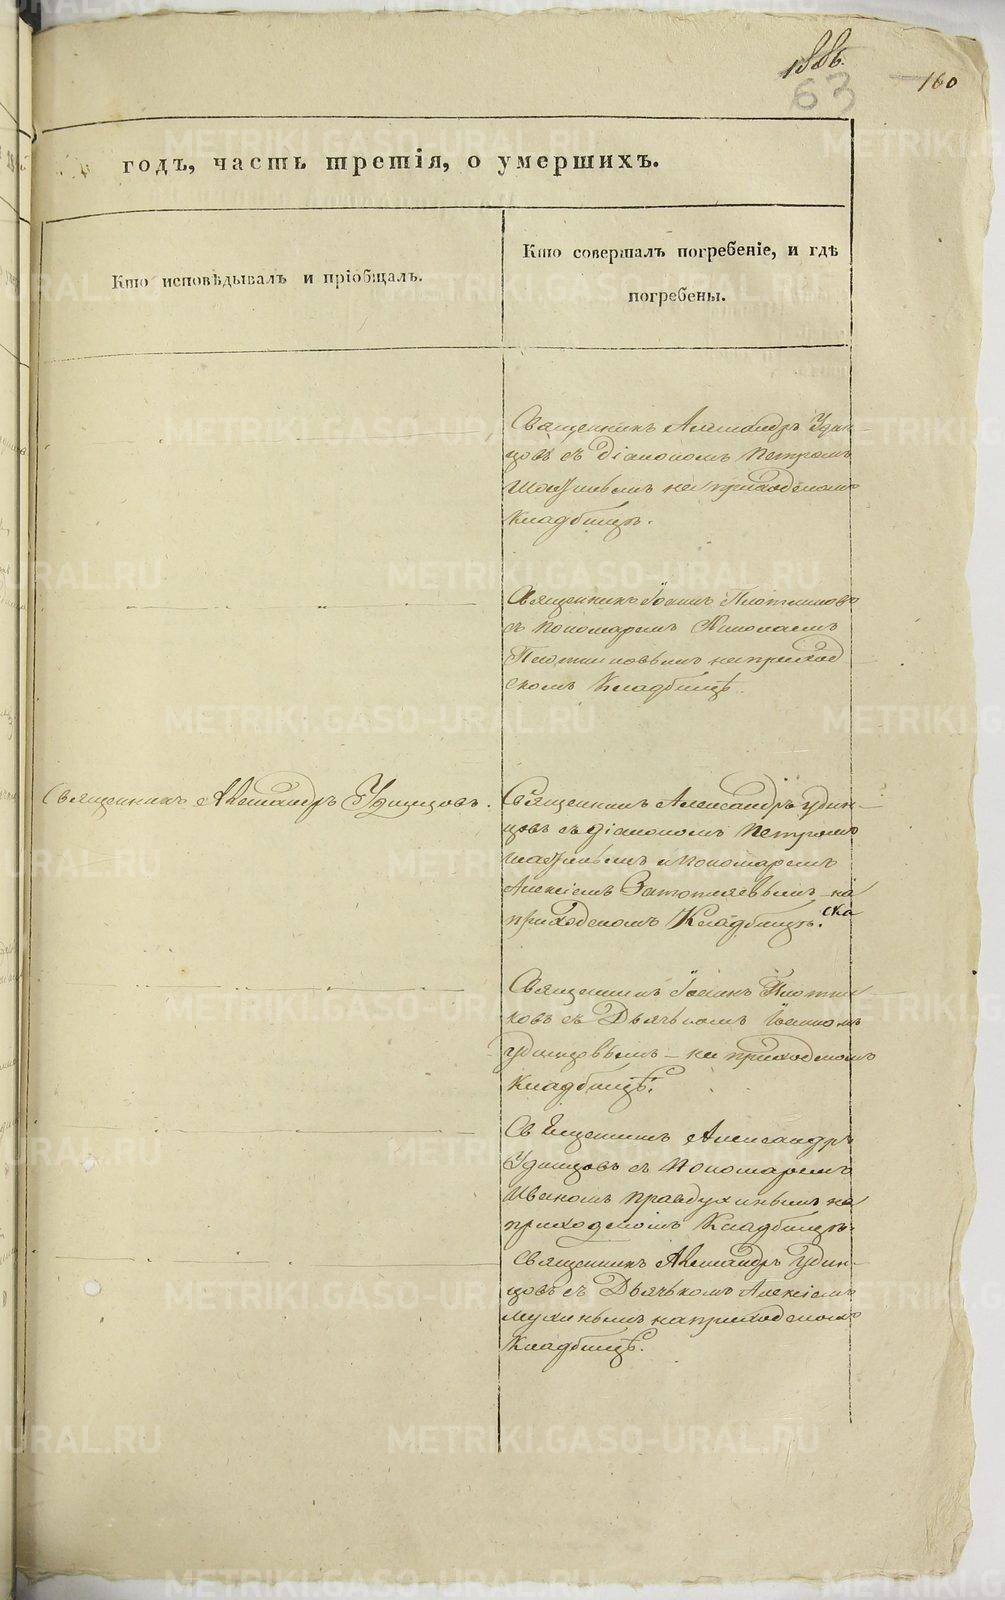 1886.
63
160
годъ, часть третія, о умершихъ.
Кто исповѣдывалъ и пріобщалъ.
Кто совершалъ погребеніе, и гдѣ
погребены.
Священникъ Александръ Удин-
цовъ съ діакономъ Петромъ
на приходскомъ
кладбищѣ.
Священникъ Іоаннъ Плотниковъ
съ пономаремъ Николаемъ
Плотниковымъ на приход
скомъ кладбищѣ.
Священникъ Александръ Удинцовъ.
Священникъ Александръ Удин-
цовъ съ діакономъ Петромъ
и пономаремъ
Алексіемъ на
приходскомъ Кладбищѣ.
Священникъ Іоаннъ Плотни
ковъ съ Дьячькомъ Іоанномъ
Удинцовымъ – на приходскомъ
кладбищѣ.
Священникъ Александръ
Удинцовъ съ пономаремъ
Иваномъ Правдухинымъ на
приходскомъ Кладбищѣ.
Священникъ Александръ Удин-
цовъ съ Дьячькомъ Алексіемъ
Мухинымъ на приходскомъ
Кладбищѣ.
METRIKI.GASO-URAL.RU